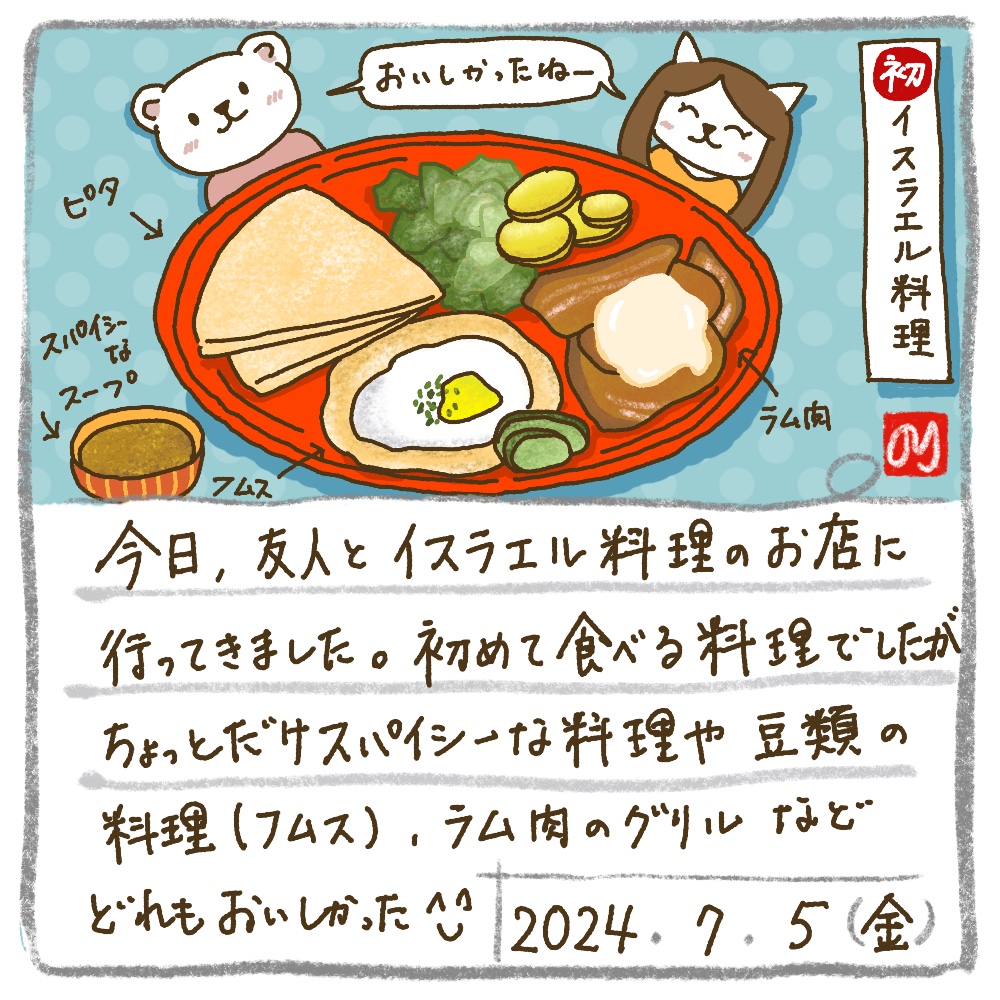 おいしかったねー
初
イスラエル料理
ピタ
スパイシー
な
スープ
フムス
ラム肉
今日,友人とイスラエル料理のお店に
行ってきました。初めて食べる料理でしたが
ちょっとだけスパイシーな料理や豆類の
料理(フムス),ラム肉のグリルなど
どれもおいしかった^^
2024.7.5(金)